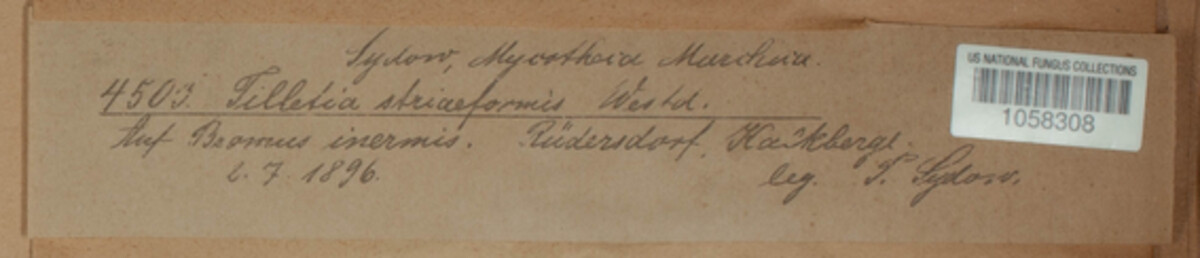 Sydow, Mycotheca Marchica.
4503. Tilletia striaeformis Westd.
Auf Bromus inermis. Rüdersdorf, Kalkberge.
7. 1896.
leg. P. Sydow.
US NATIONAL FUNGUS COLLECTIONS
1058308